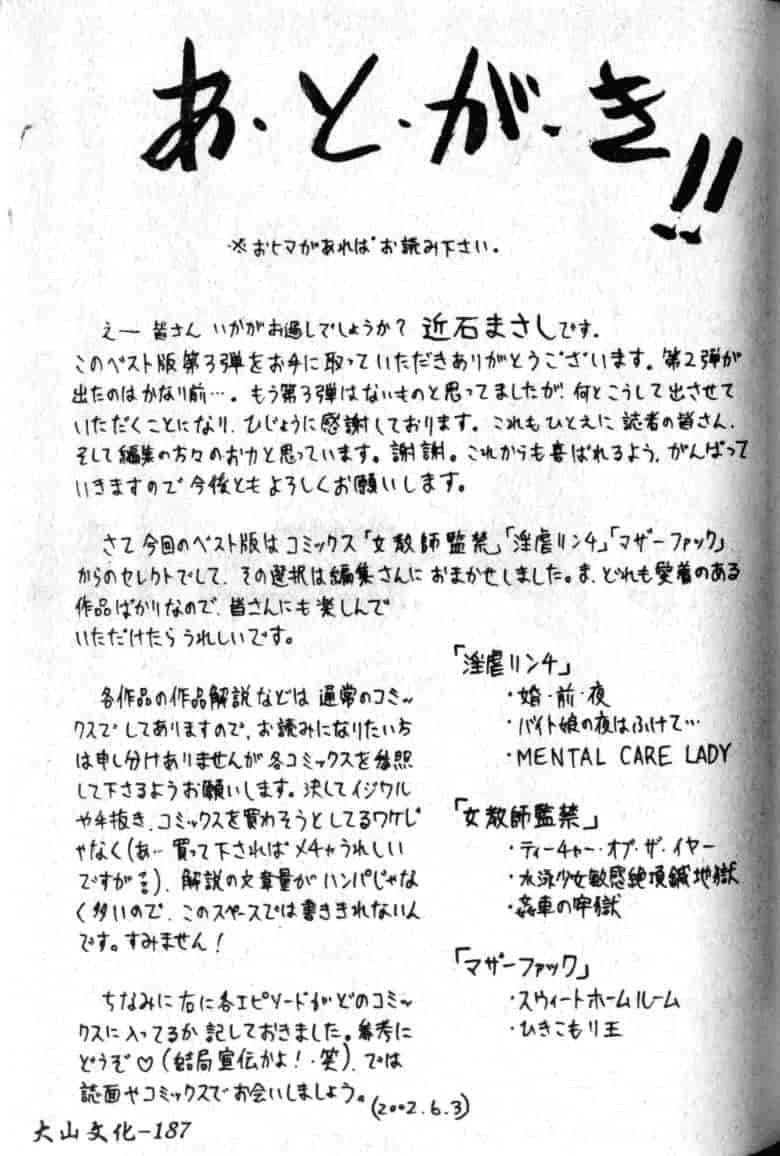 あ・と・が・き!!
※おヒマがあればお読み下さい。
えー 皆さん いかがお過しでしょうか？ 近石まさしです。
このベスト版第3弾をお手に取っていただきありがとうございます。第2弾が
出たのはかなり前…。もう第3弾はないものと思ってましたが、何とこうして出させて
いただくことになり、ひじょうに感謝しております。これもひとえに読者の皆さん、
そして編集の方々のお力と思っています。謝謝。これからも喜ばれるよう、がんばって
いきますので今後ともよろしくお願いします。
さて今回のベスト版はコミックス「女教師監禁」「淫虐リンチ」「マザーファック」
からのセレクトでして、その選択は編集さんにおまかせしました。ま、どれも愛着のある
作品ばかりなので、皆さんにも楽しんで
いただけたらうれしいです。
各作品の作品解説などは通常のコミッ
クスでしてありますので、お読みになりたい方
は申し分けありませんが各コミックスを参照
して下さるようお願いします。決してイジワル
や手抜き、コミックスを買わそうとしてるワケじ
ゃなく(あ…買って下さればメチャうれしい
ですが)、解説の文章量がハンパじゃな
く多いので、このスペースでは書ききれないん
です。すみません！
ちなみに右に各エピソードがどのコミッ
クスに入ってるか記しておきました。参考に
どうぞ♡(結局宣伝かよ！・笑)、では
誌面やコミックスでお会いしましょう。(2002.6.3)
「淫虐リンチ」
・婚・前・夜
・バイト娘の夜はふけて…
・MENTAL CARE LADY
「女教師監禁」
・ティーチャー・オブ・ザ・イヤー
・水泳少女敏感絶頂鍼地獄
・姦車の牢獄
「マザーファック」
・スウィートホームルーム
・ひきこもり王
大山文化-187